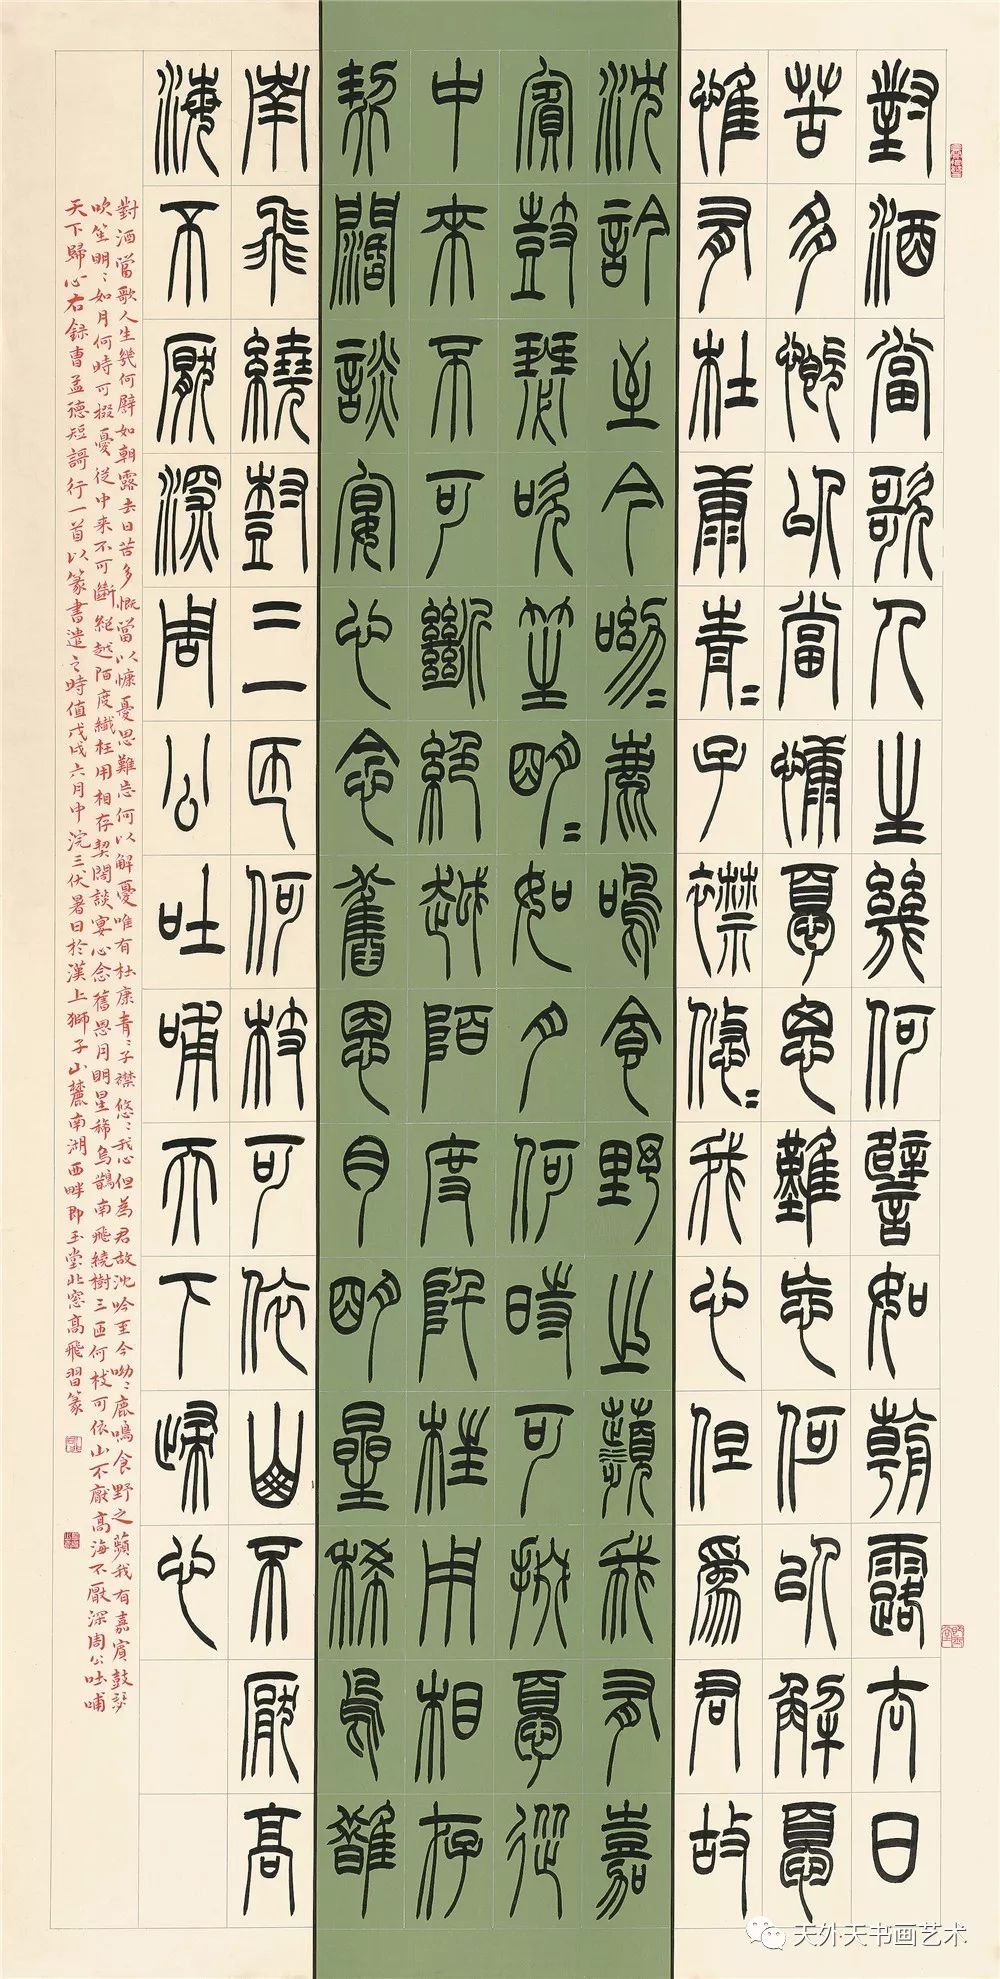 對酒當歌人生幾何譬如朝露去日
苦多慨以當慷憂思難忘何以解憂
惟有杜康青〻子襟悠〻我心但爲君故
沈訡至今呦〻鹿鳴食野之蘋我有嘉
賓鼓瑟吹笙明〻如月何時可掇憂從
中來不可斷絕越陌度阡枉用相存
契闊談宴心念舊恩月明星稀烏鵲
南飛繞樹三匝何枝可依山不厭高
海不厭深周公吐哺天下歸心
對酒當歌人生幾何譬如朝露去日苦多慨當以慷憂思難忘何以解憂唯有杜康青〻子襟悠〻我心但為君故沈吟至今呦〻鹿鳴食野之蘋我有嘉賓鼓瑟
吹笙明〻如月何時可掇憂從中來不可斷絕越陌度枉用相存契闊談宴心念舊恩月明星稀烏鵲南飛繞樹三匝何枝可依山不厭高海不厭深周公吐哺
天下歸心右録曹孟德短謌行一首以篆書遣之時值戊戌六月中浣三伏暑日於漢上獅子山麓南湖西畔即玉堂北窓高飛習篆
天外天书画艺术